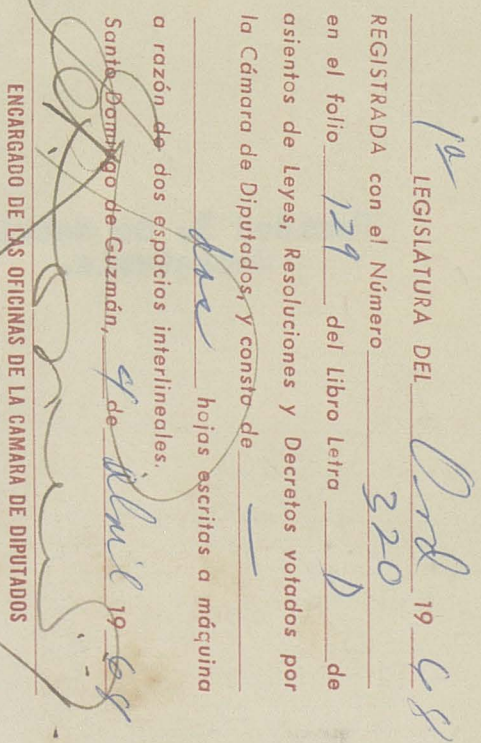 1ª LEGISLATURA DEL Ord 1968
REGISTRADA con el Número 320
en el folio 129 del Libro Letra D de
asientos de Leyes, Resoluciones y Decretos votados por
la Cámara de Diputados, y consta de —
dos hojas escritas a máquina
a razón de dos espacios interlineales.
Santo Domingo de Guzmán, 4 de Abril 1968
ENCARGADO DE LAS OFICINAS DE LA CAMARA DE DIPUTADOS